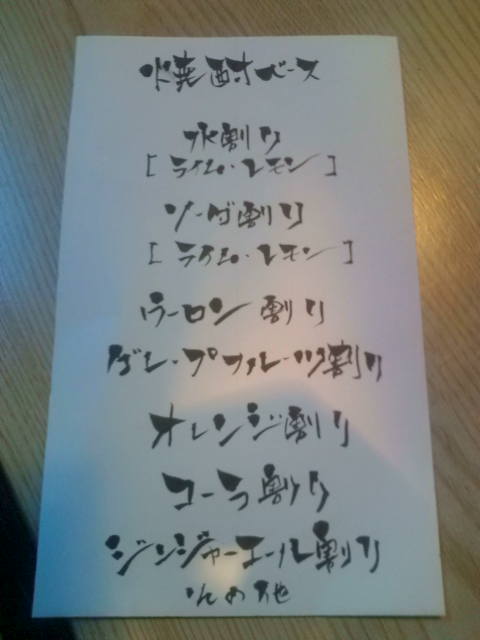 焼酎ベース
水割り
[ ライム・レモン ]
ソーダ割り
[ ライム・レモン ]
ウーロン割り
グレープフルーツ割り
オレンジ割り
コーラ割り
ジンジャーエール割り
その他